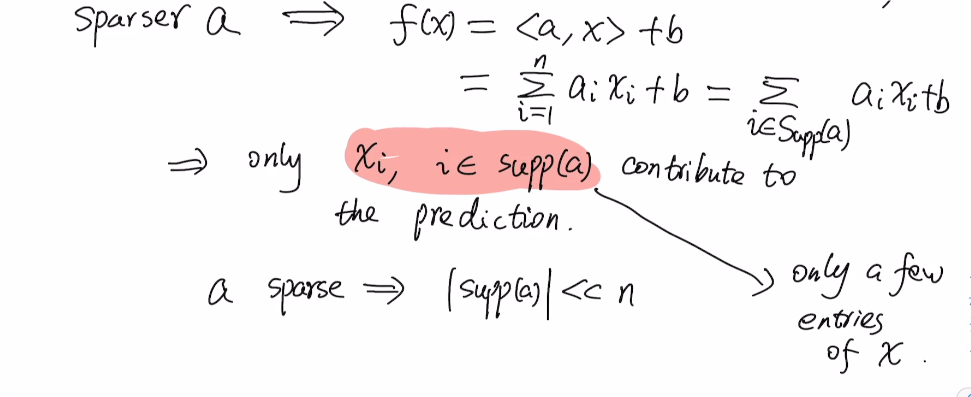 sparser a ⟹ f(x) = <a, x> + b
= ∑_{i=1}^{n} a_i x_i + b = ∑_{i∈Supp(a)} a_i x_i + b
⇒ only x_i, i ∈ supp(a) contribute to
the prediction.
a sparse ⇒ |supp(a)| << n
only a few
entries
of x.